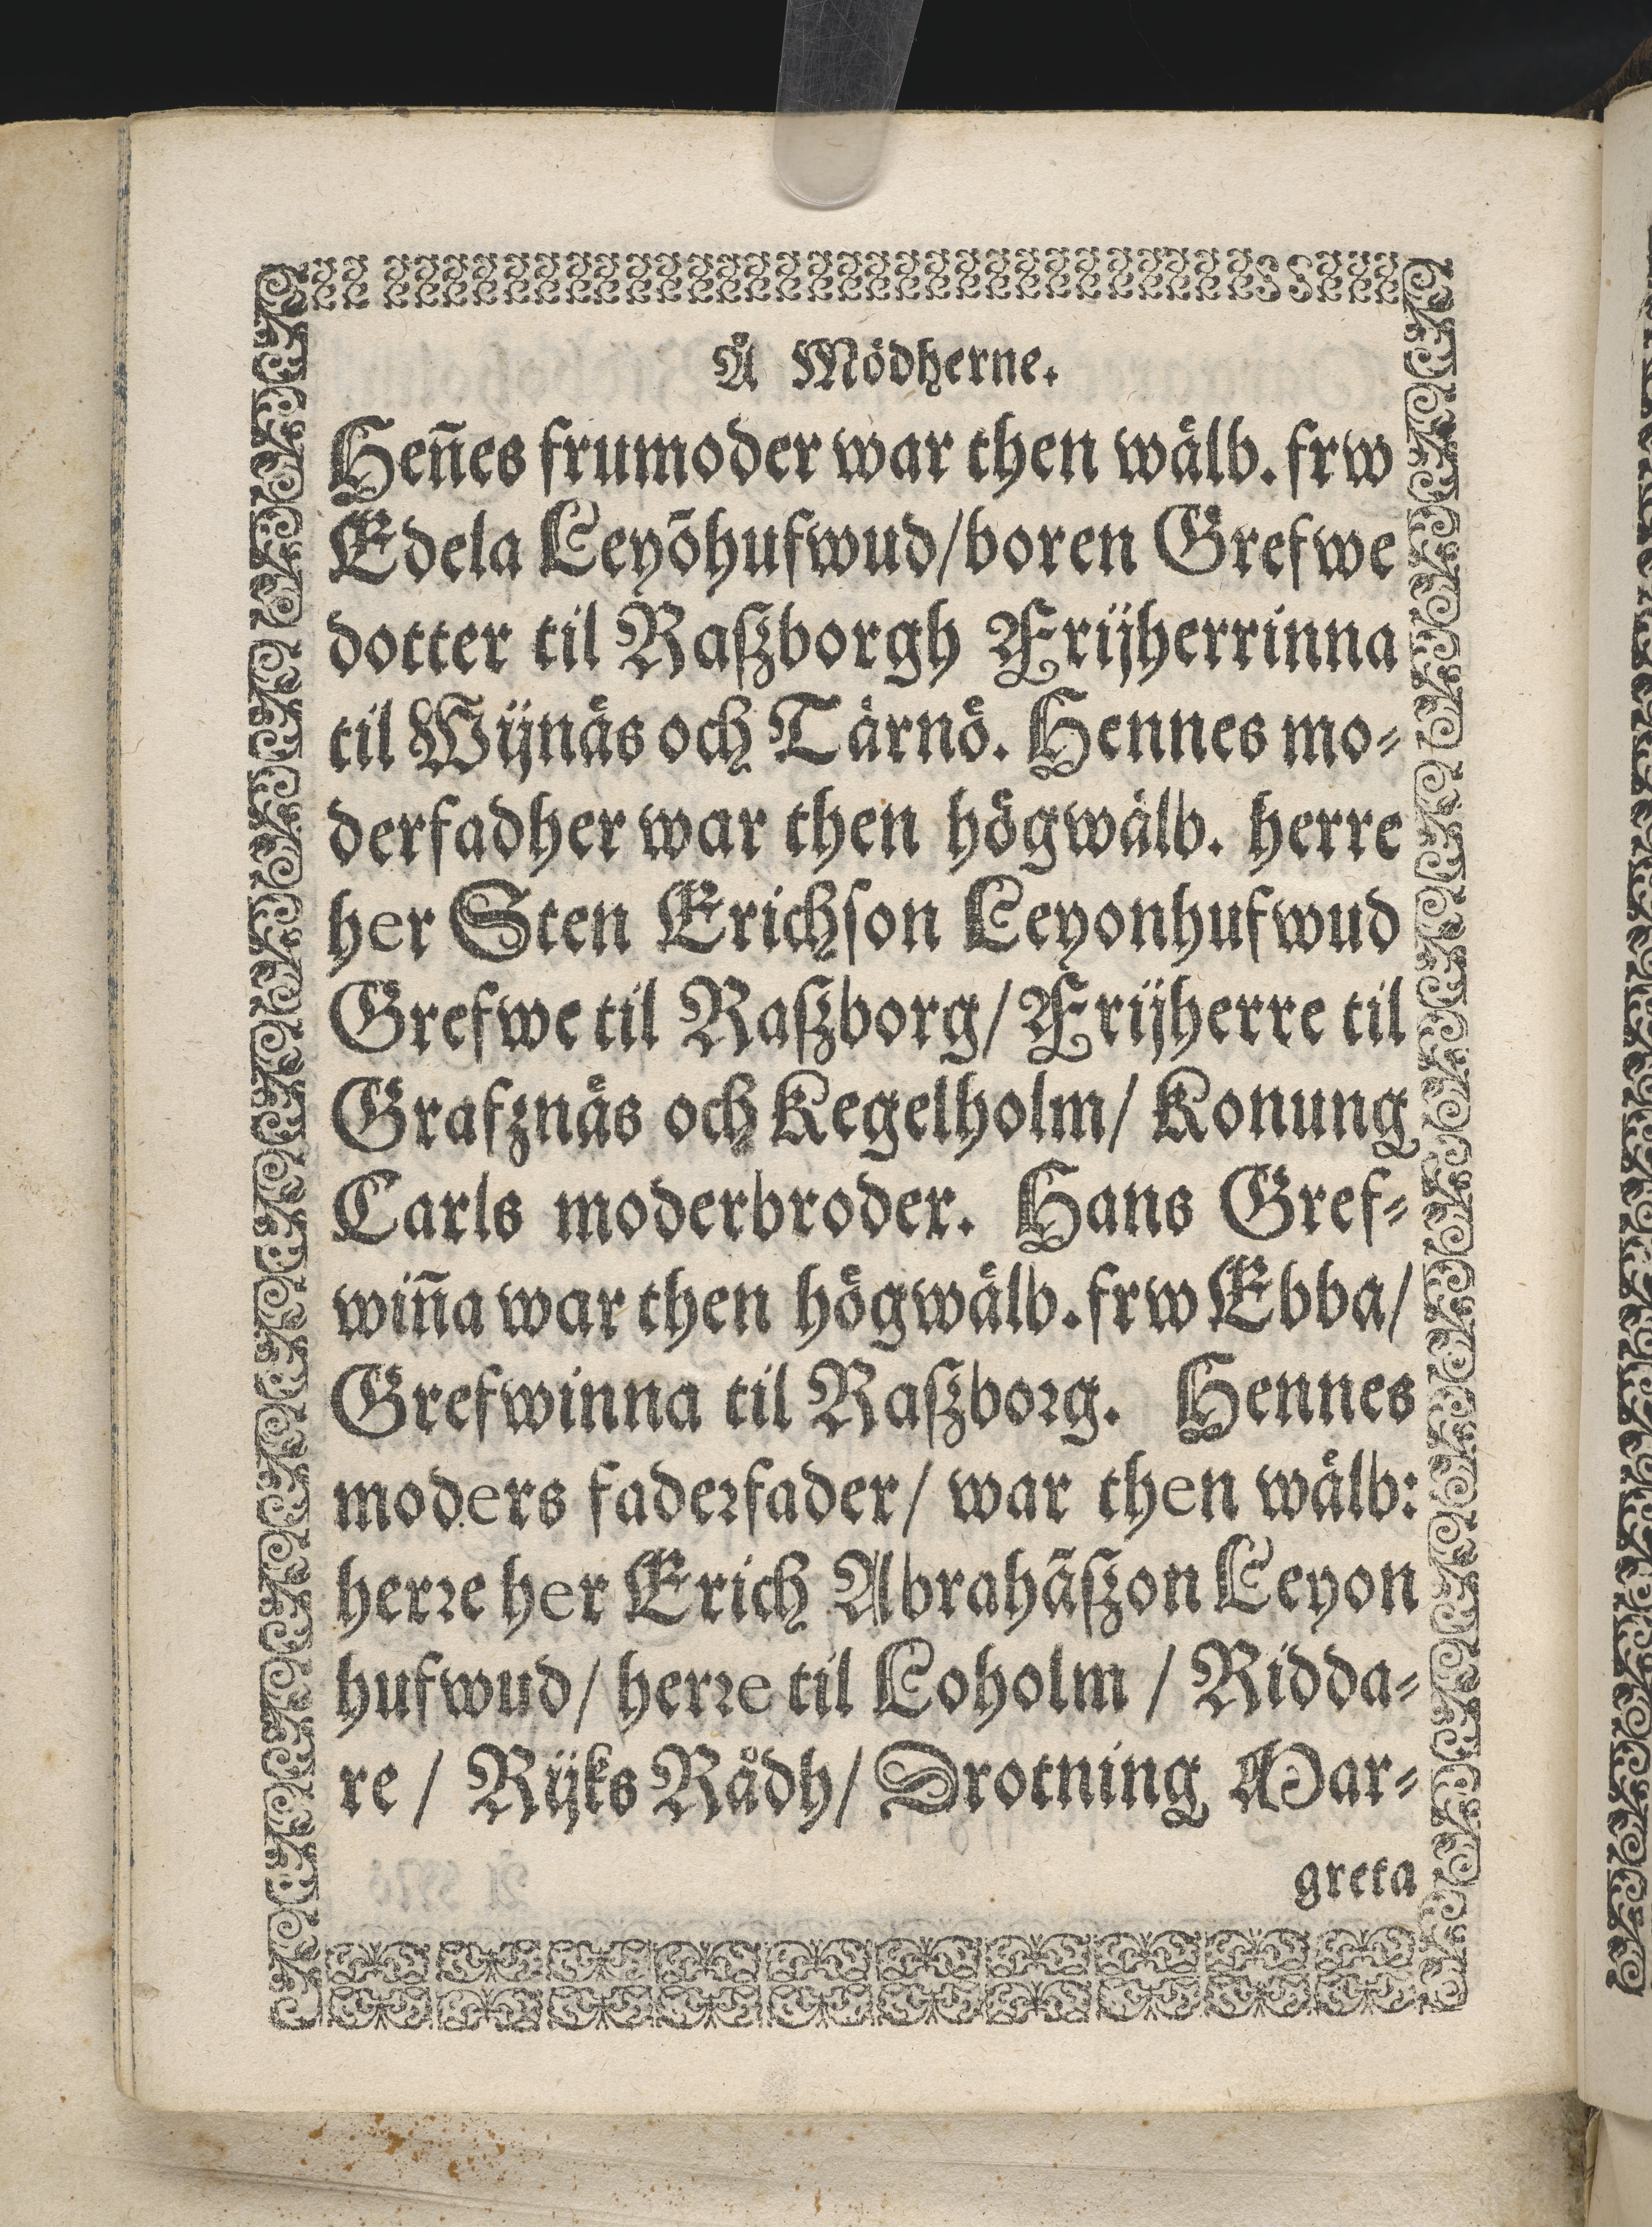 Å Mödherne.
Hen̄es frumoder war then wälb. frw
Edela Leyōhufwud/boren Grefwe
dotter til Raſzborgh Frijherrinna
til Wijnäs och Tärnö. Hennes mo⸗
derfadher war then högwälb. herre
her Sten Erichſon Leyonhufwud
Grefwe til Raſzborg/ Frijherre til
Grafznäs och Kegelholm/ Konung
Carls moderbroder. Hans Gref⸗
win̄a war then högwälb. frw Ebba/
Grefwinna til Raſzborg. Hennes
moders faderfader/ war then wälb:
herre her Erich Abrahāſzon Leyon
hufwud/ herre til Loholm / Ridda⸗
re / Rijks Rådh/ Drotning Mar⸗
greta